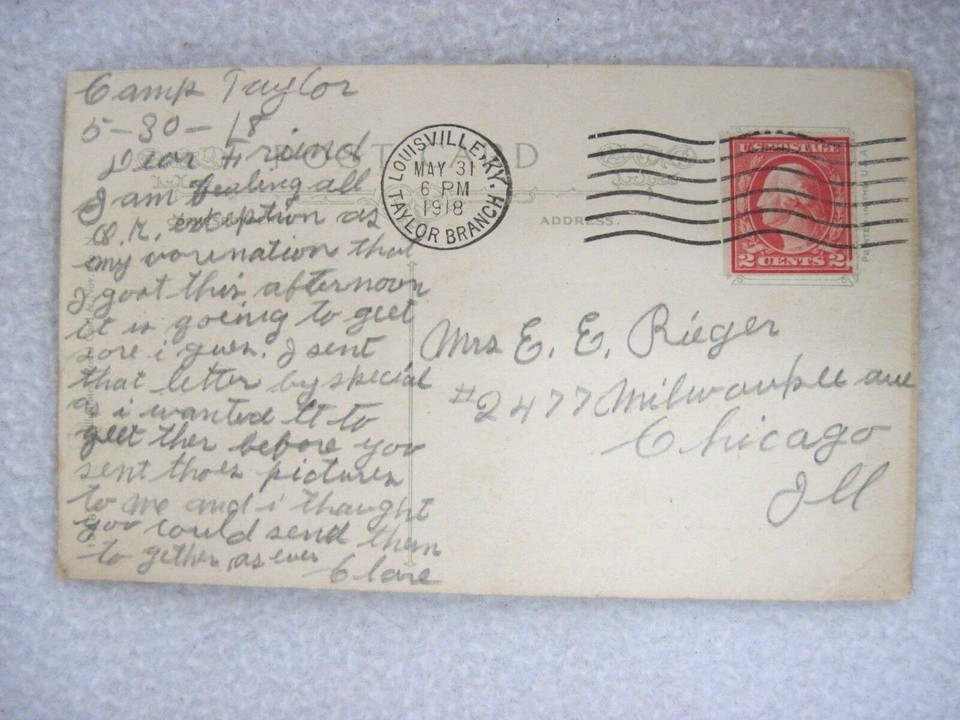 Camp Taylor
5-30-18
Dear Friend
I am feeling all
O.K. exception as
my vorenation that
I goot this afternoon
it is going to geet
sore i guess. I sent
that letter by special
as i wanted it to
geet ther before you
sent thoes pictures
to me and i thought
you could send them
to gether, as ever
Clare
POST CARD
ADDRESS.
LOUISVILLE, KY.
MAY 31
6 PM
1918
TAYLOR BRANCH
U.S. POSTAGE
2 CENTS 2
Mrs E. E. Rieger
#2477 Milwaukee ave
Chicago
Ill